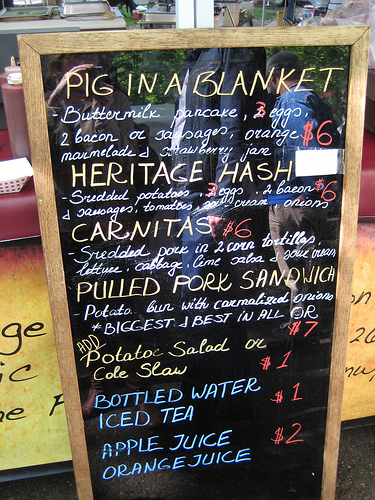 PIG IN A BLANKET
- Buttermilk pancake, 3 eggs,
2 bacon or sausages, orange $6
marmelade & strawberry jam
HERITAGE HASH
- Sredded potatoes, 3 eggs, 2 bacon $6
& sausages, tomatoes, sour cream onions
CARNITAS $6
- Sredded pork in 2 corn tortillas,
lettuce, cabbage, lime salsa & sour cream
PULLED PORK SANDWICH
- Potato bun with carmalized onions
* BIGGEST & BEST IN ALL OR
$7
ADD
Potato Salad or
Cole Slaw $1
BOTTLED WATER $1
ICED TEA
APPLE JUICE $2
ORANGE JUICE
ge
ic